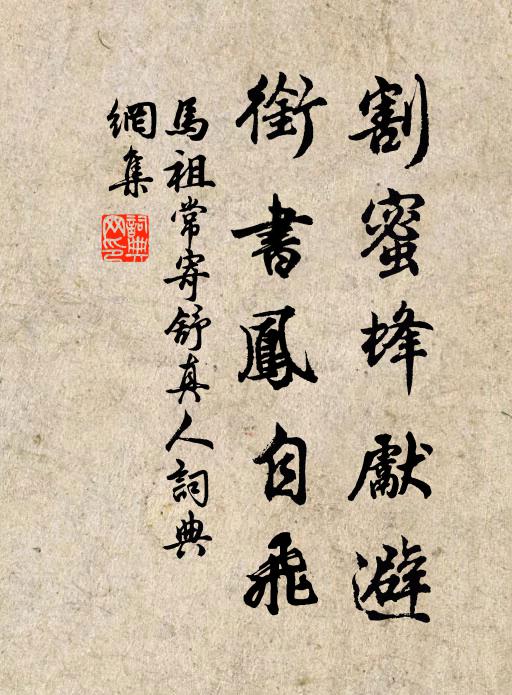 割蜜蜂獻避
銜書鳳自飛
馬祖常寄舒真人詞典
網集
詞典網印